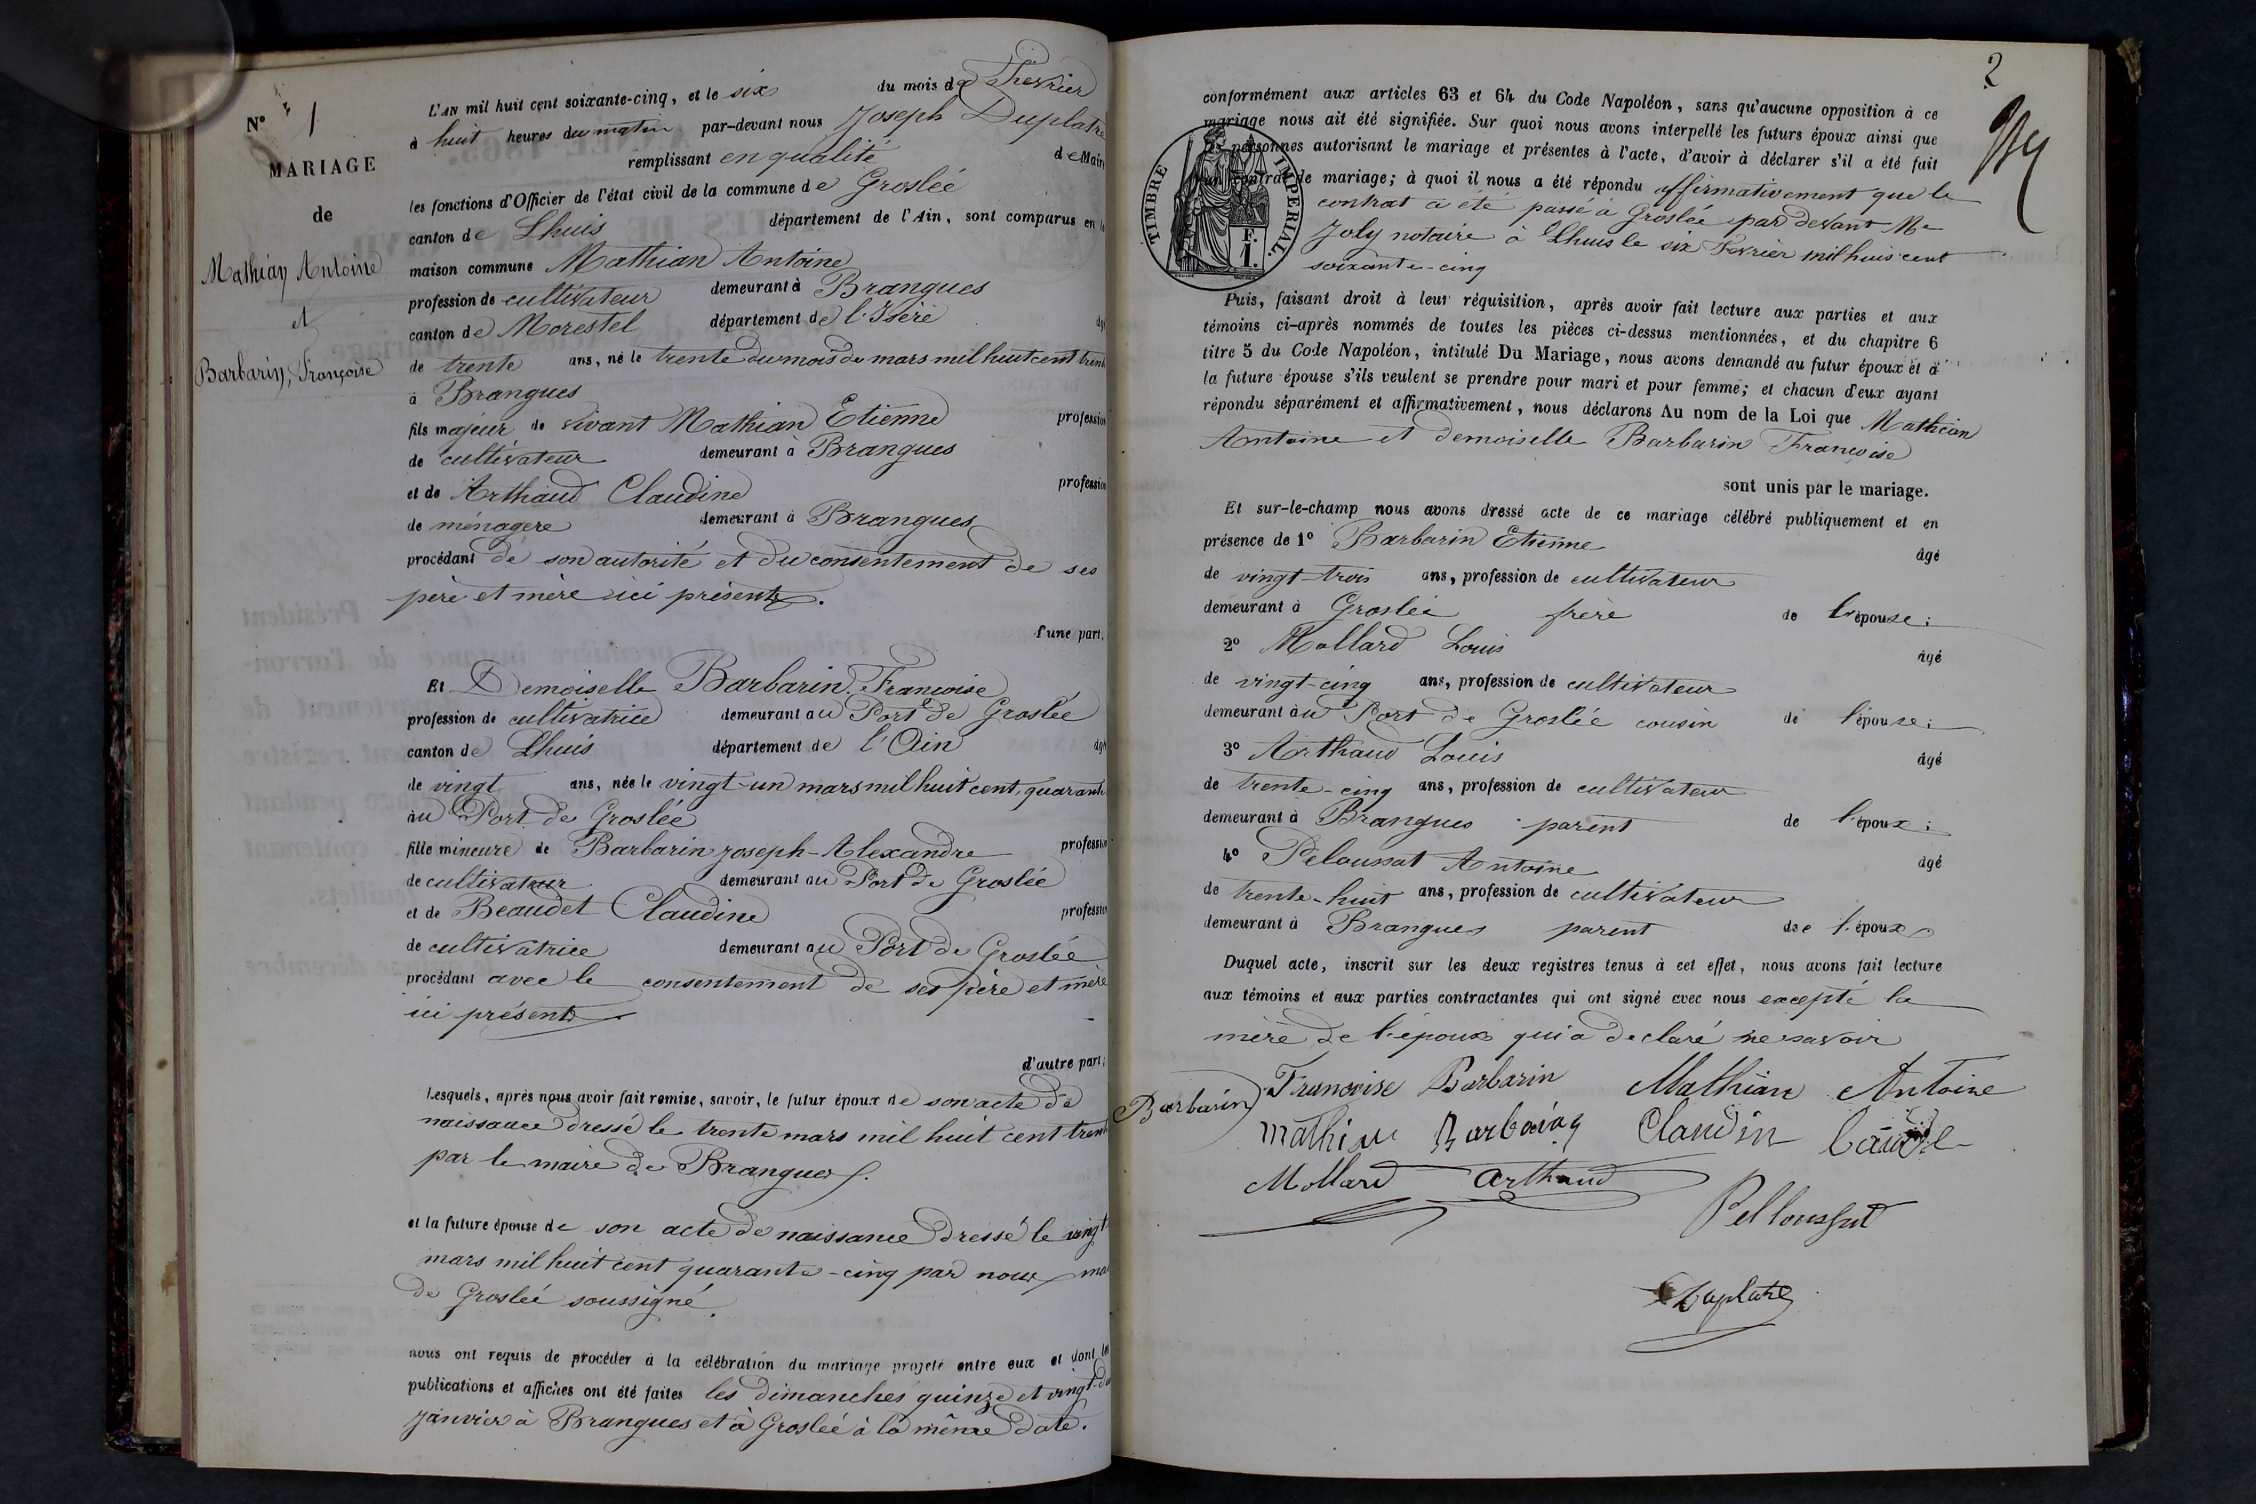 N° 1
MARIAGE
de
Mathian Antoine
et
Barbarin, Françoise
L'AN mil huit cent soixante-cinq, et le six du mois de Fhevrier
à huit heures du matin par-devant nous Joseph Duplatre
remplissant en qualité de Maire
les fonctions d'Officier de l'état civil de la commune de Groslée
canton de Lhuis département de l'Ain, sont comparus en la
maison commune Mathian Antoine
profession de cultivateur demeurant à Brangues
canton de Morestel département de l'Isère âgé
de trente ans, né le trente du mois de mars mil huit cent trente
à Brangues
fils majeur de vivant Mathian Etienne profession
de cultivateur demeurant à Brangues
et de Arthaud Claudine profession
de ménagere demeurant à Brangues
procédant de son autorité et du consentement de ses
père et mère ici présents.
d'une part,
Et Demoiselle Barbarin, Françoise
profession de cultivatrice demeurant au Port de Groslée
canton de Lhuis département de l'Ain âgée
de vingt ans, née le vingt-un mars mil huit cent, quarante
au Port de Groslée
fille mineure de Barbarin Joseph-Alexandre profession
de cultivateur demeurant au Port de Groslée
et de Beaudet Claudine profession
de cultivatrice demeurant au Port de Groslée
procédant avec le consentement de ses père et mère
ici présents
d'autre part;
Lesquels, après nous avoir fait remise, savoir, le futur époux de son acte de
naissance dressé le trente mars mil huit cent trente
par le maire de Brangues.
et la future épouse de son acte de naissance dressé le vingt
mars mil huit cent quarante-cinq par nous
de Groslée soussigné.
nous ont requis de procéder à la célébration du mariage projeté entre eux et dont les
publications et affiches ont été faites les dimanches quinze et vingt
Janvier à Brangues et à Groslée à la même date.
2
conformément aux articles 63 et 64 du Code Napoléon, sans qu'aucune opposition à ce
mariage nous ait été signifiée. Sur quoi nous avons interpellé les futurs époux ainsi que
les personnes autorisant le mariage et présentes à l'acte, d'avoir à déclarer s'il a été fait
un contrat de mariage; à quoi il nous a été répondu affirmativement que le
contrat a été passé à Groslée par devant Me
Joly notaire à Lhuis le six Fevrier mil huis cent
soixante-cinq
TIMBRE IMPERIAL.
1 F.
Puis, faisant droit à leur réquisition, après avoir fait lecture aux parties et aux
témoins ci-après nommés de toutes les pièces ci-dessus mentionnées, et du chapitre 6
titre 5 du Code Napoléon, intitulé Du Mariage, nous avons demandé au futur époux et à
la future épouse s'ils veulent se prendre pour mari et pour femme; et chacun d'eux ayant
répondu séparément et affirmativement, nous déclarons Au nom de la Loi que Mathian
Antoine et demoiselle Barbarin Françoise
sont unis par le mariage.
Et sur-le-champ nous avons dressé acte de ce mariage célébré publiquement et en
présence de 1° Barbarin Etienne âgé
de vingt-trois ans, profession de cultivateur
demeurant à Groslée frère de l'épouse;
2° Mollard Louis âgé
de vingt-cinq ans, profession de cultivateur
demeurant au Port de Groslée cousin de l'épouse;
3° Arthaud Louis âgé
de trente-cinq ans, profession de cultivateur
demeurant à Brangues parent de l'époux;
4° Peloussat Antoine âgé
de trente-huit ans, profession de cultivateur
demeurant à Brangues parent de l'époux
Duquel acte, inscrit sur les deux registres tenus à cet effet, nous avons fait lecture
aux témoins et aux parties contractantes qui ont signé avec nous excepté la
mère de l'époux qui a declaré ne savoir
Barbarin Françoise Barbarin Mathian Antoine
Mathian Barbarin Claudin
Mollard Arthaud
Pelloussat
Duplatre